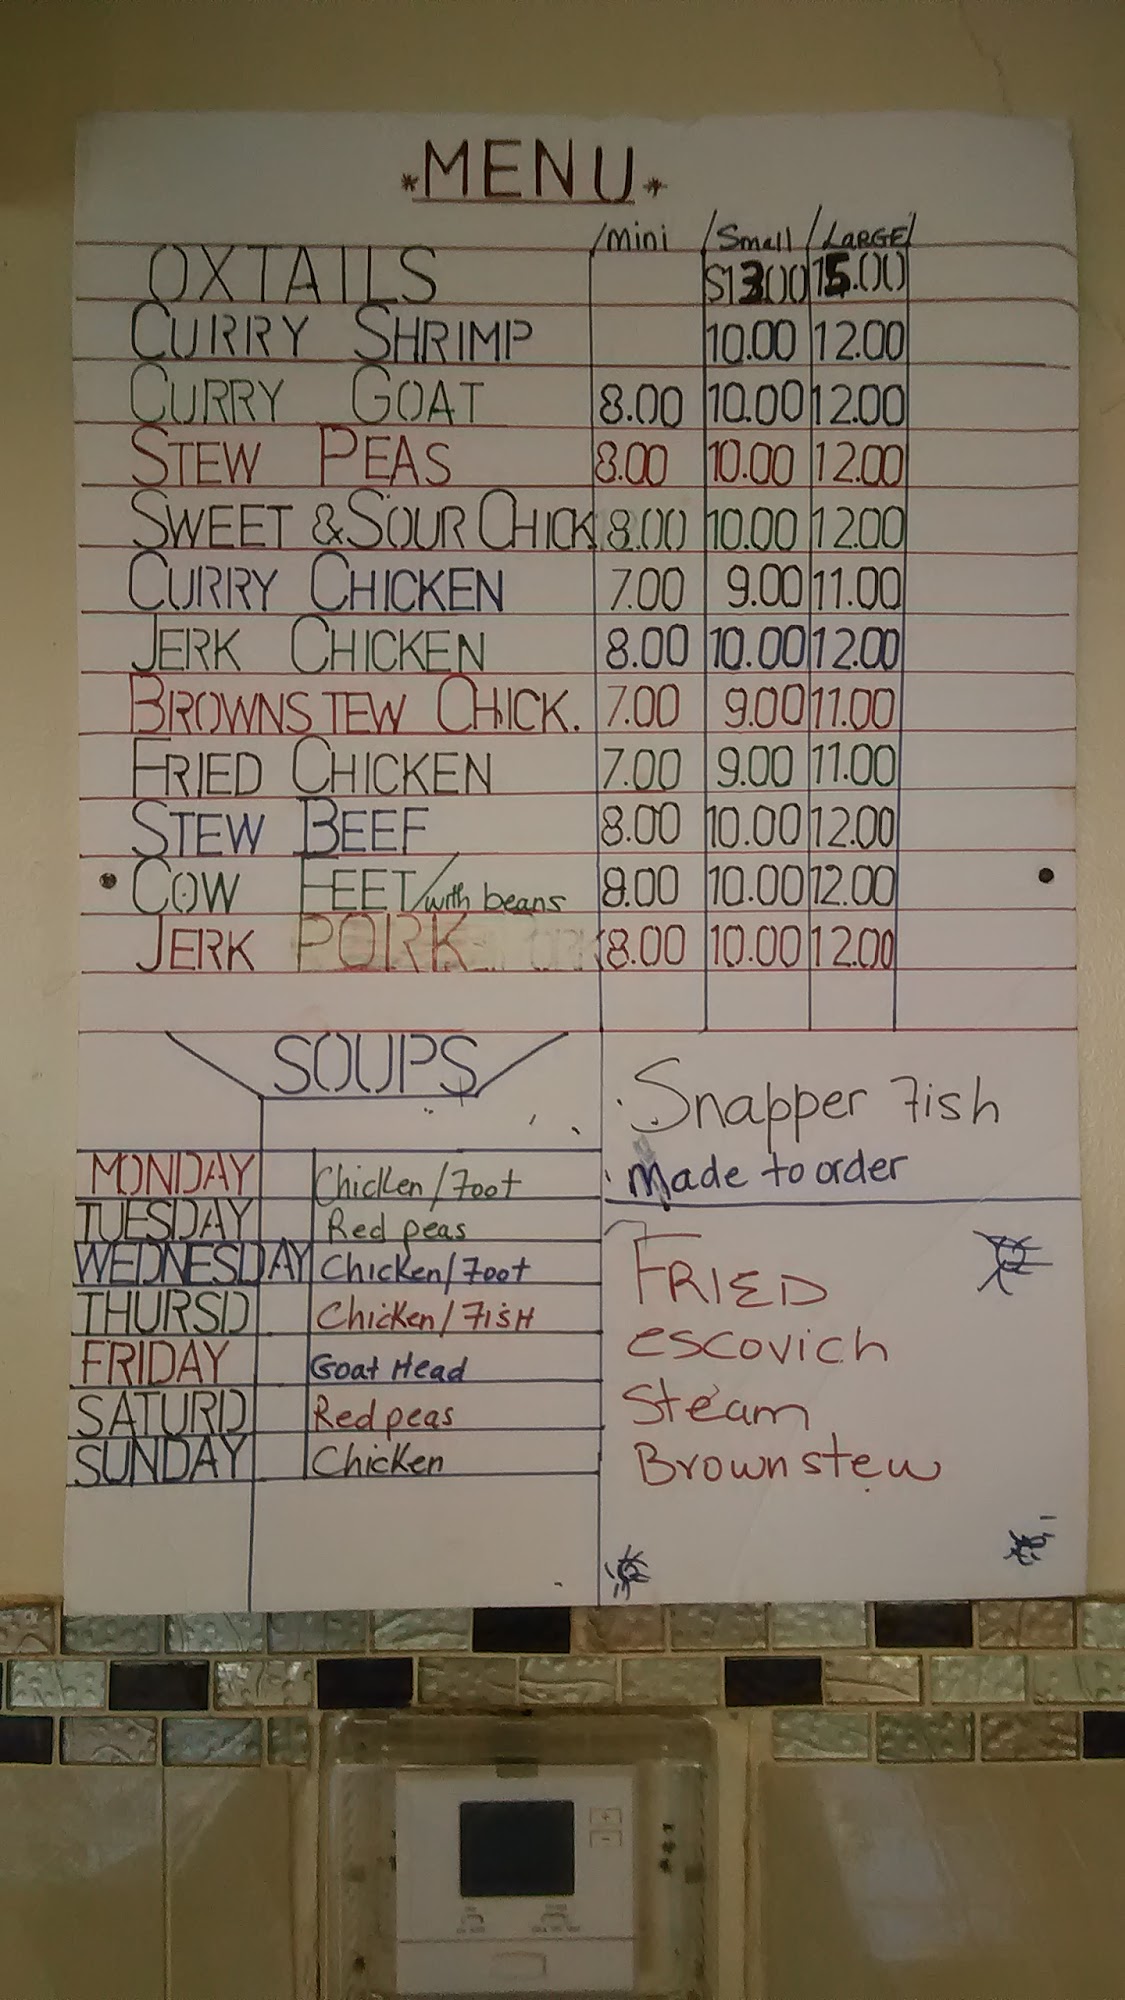 *MENU*
/mini /Small /LARGE/
OXTAILS $13.00 15.00
CURRY SHRIMP 10.00 12.00
CURRY GOAT 8.00 10.00 12.00
STEW PEAS 8.00 10.00 12.00
SWEET & SOUR CHICK 8.00 10.00 12.00
CURRY CHICKEN 7.00 9.00 11.00
JERK CHICKEN 8.00 10.00 12.00
BROWNSTEW CHICK. 7.00 9.00 11.00
FRIED CHICKEN 7.00 9.00 11.00
STEW BEEF 8.00 10.00 12.00
COW FEET/with beans 8.00 10.00 12.00
JERK PORK 8.00 10.00 12.00
SOUPS
MONDAY Chicken/Foot
TUESDAY Red peas
WEDNESDAY Chicken/Foot
THURSD Chicken/FisH
FRIDAY Goat Head
SATURD Red peas
SUNDAY Chicken
Snapper Fish
Made to order
FRIED
escovich
Steam
Brownstew